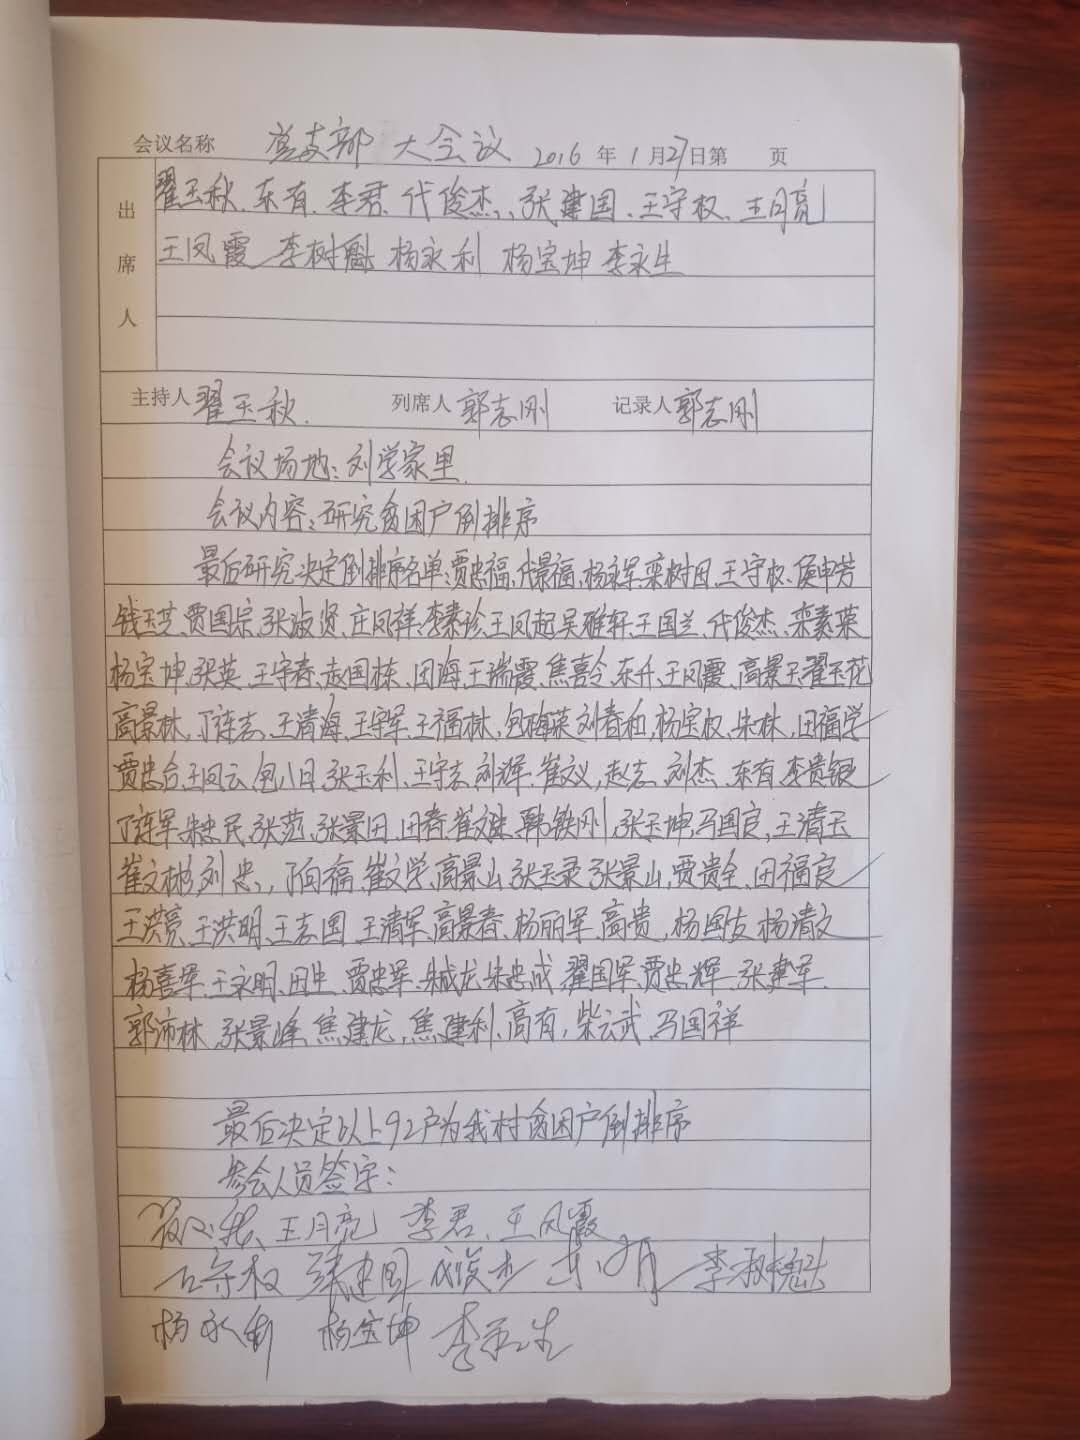 会议名称 党支部 大会议 2016 年 1 月 27 日第 页
出席人
翟玉秋、东有、李君、代俊杰、张建国、王守权、王月亮
王凤霞 李树魁 杨永利 杨宝坤 李永生
主持人 翟玉秋. 列席人 郭志刚 记录人 郭志刚
会议场地：刘学家里.
会议内容：研究贫困户倒排序
最后研究决定倒排序名单：贾忠福、代景福、杨永军、栾树田、王守权、侯申芳
钱玉芝、贾国宗、张淑贤、庄凤祥、李素珍、王凤起、吴雅轩、王国兰、代俊杰、栾素荣
杨宝坤、张英、王守春、赵国栋、田海、王瑞霞、焦喜令、东升、王凤霞、高景玉、翟玉花
高景林、丁连志、王清海、王守军、王福林、包梅英、刘春和、杨宝权、朱林、田福学
贾忠合、王凤云、包八月、张玉利、王守志、刘辉、崔文义、赵志、刘杰、东有、李贵银
丁连军、朱忠民、张范、张景田、田春、崔文、韩铁刚、张玉坤、马国良、王清玉
崔文彬、刘忠、丁向福、崔文学、高景山、张玉录、张景山、贾贵全、田福良
王洪亮、王洪明、王志国、王清军、高景春、杨丽军、高贵、杨国友、杨清文
杨喜军、王文明、田生、贾忠军、朱成龙、朱忠成、翟国军、贾忠辉、张建军、
郭沛林、张景峰、焦建龙、焦建利、高有、柴云武、马国祥
最后决定以上92户为我村贫困户倒排序
参会人员签字：
王月亮 李君、王凤霞
王守权 张建国 代俊杰 东有 李树魁
杨永利 杨宝坤 李永生